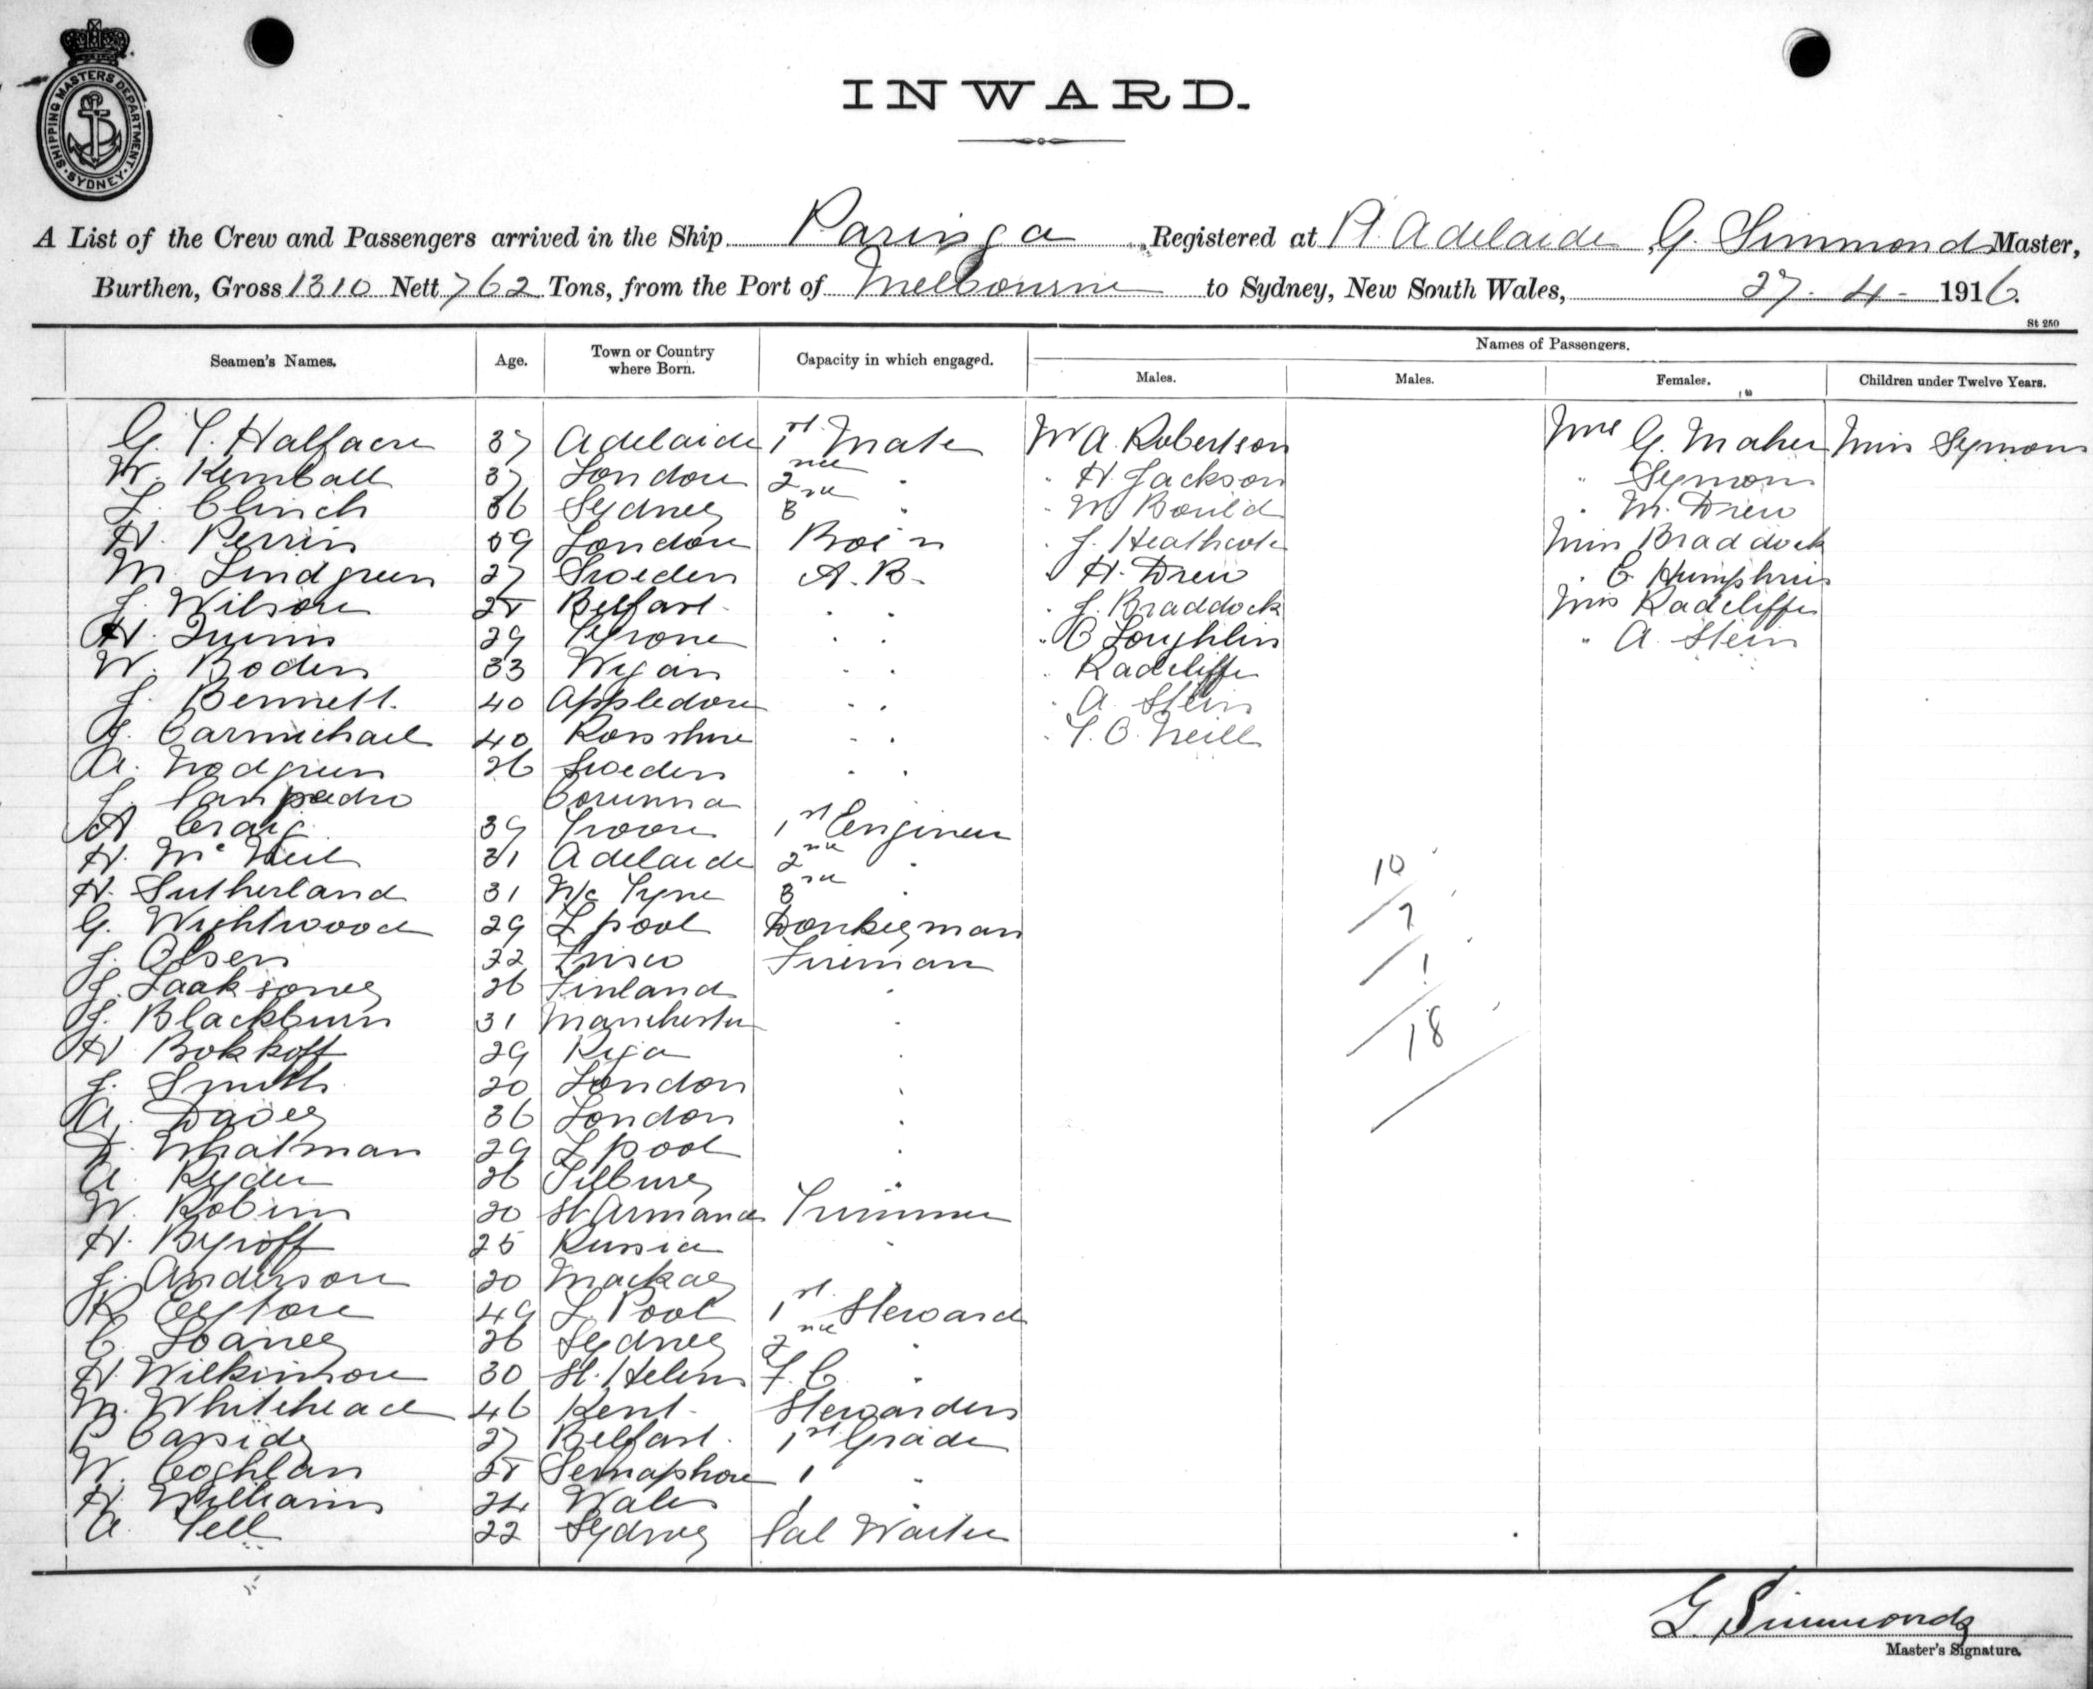 SHIPPING MASTERS DEPARTMENT. SYDNEY
INWARD.
A List of the Crew and Passengers arrived in the Ship Paringa Registered at Pt. Adelaide, G. Simmonds Master,
Burthen, Gross 1310 Nett 762 Tons, from the Port of Melbourne to Sydney, New South Wales, 27-4-1916.
St 250
Seamen's Names. Age. Town or Country where Born. Capacity in which engaged. Names of Passengers.
Males. Males. Females. Children under Twelve Years.
G. T. Halfacre 37 Adelaide 1st Mate Mr A. Robertson Mrs G. Maher Miss Symons
W. Kemball 37 London 2nd " " H. Jackson " Symons
L. Clinch 36 Sydney 3rd " " W. Bould " M. Drew
H. Perrin 59 London Bos'n " J. Heathcote Miss Braddock
M. Lindgren 27 Sweden A.B. " H. Drew " C. Humphris
J. Wilson 25 Belfast " " " J. Braddock Miss Radcliffe
H. Quinn 29 Tyrone " " " C Loughlin " A. Stein
W. Boden 33 Wigan " " " Radcliffe
J. Bennett 40 Appledore " " " A. Stein
J. Carmichael 40 Ross shire " " " T. O. Neill
A. Nodgren 26 Sweden " "
J. Sanpedro Corunna
A Craig 39 Troon 1st Engineer
H. McNeil 31 Adelaide 2nd "
H. Sutherland 31 N/c Tyne 3rd "
G. Wightwood 29 L pool Donkeyman
J. Olsen 22 Frisco Fireman
J. Laaksoney 26 Finland "
J. Blackburn 31 Manchester "
H Bokkoff 29 Riga "
J. Smith 20 London "
A. Davey 36 London "
D. Whatman 29 L pool "
A. Ryder 26 Tilbury "
W. Robins 20 St Armand Trimmer
H. Byroff 25 Russia "
J. Anderson 20 Mackay "
R Eyton 49 L. Pool 1st Steward
C. Loaney 26 Sydney 2nd "
H. Wilkinson 30 St. Helens F. C. "
M. Whitehead 46 Kent Stewardess
P Cassidy 27 Belfast 1st Grade
W. Coghlan 25 Semaphore 1 "
H. Williams 24 Wales 1 "
A. Tell 22 Sydney Sal Waiter
10
7
1
18
G. Simmonds
Master's Signature.